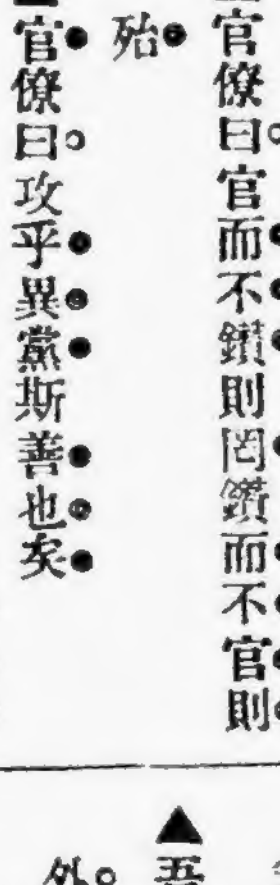 官僚曰官而不鑽則罔鑽而不官則
殆
官僚曰攻乎異黨斯善也矣
▲吾
外